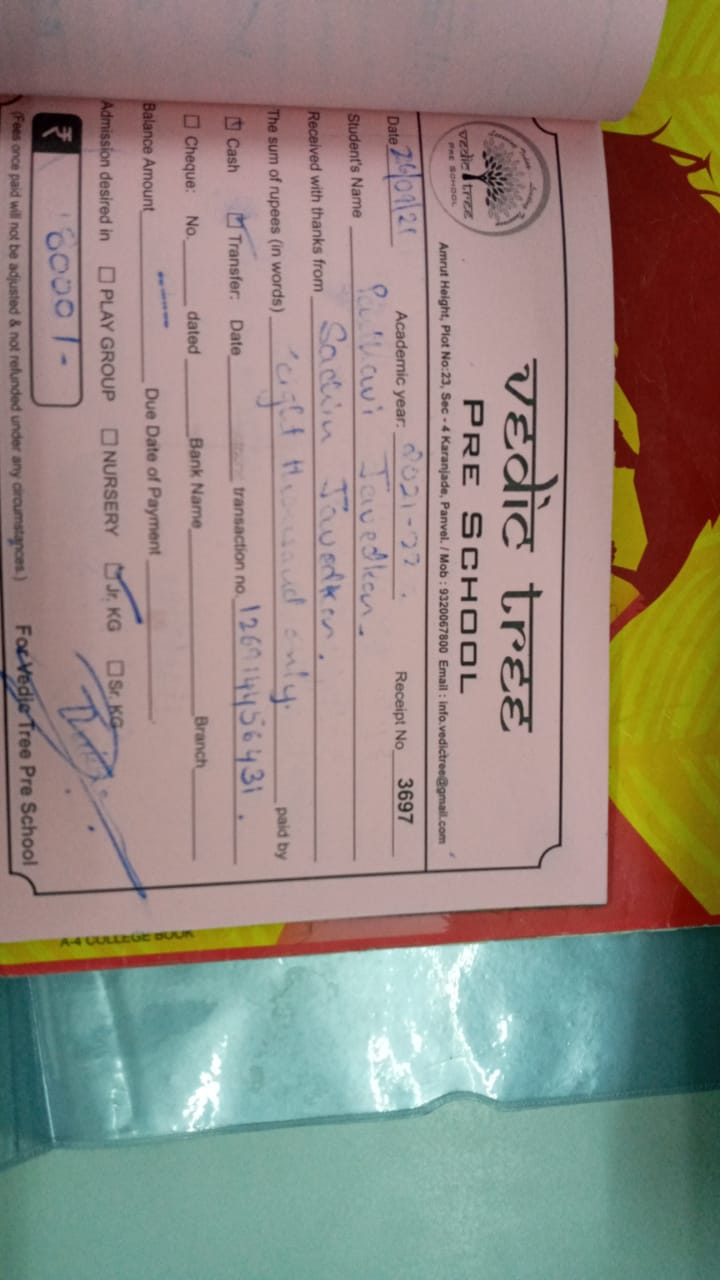 vedic tree
PRE SCHOOL
vedic tree
PRE SCHOOL
Amrut Height, Plot No:23, Sec - 4 Karanjade, Panvel. / Mob : 9320067800 Email : info.vedictree@gmail.com
Date 26/09/21 Academic year: 2021-22. Receipt No 3697
Student's Name Pallavi Javedkar.
Received with thanks from Sachin Javedkar.
The sum of rupees (in words) eight thousand only. paid by
Cash Transfer: Date transaction no. 126914456431.
Cheque: No. dated Bank Name Branch
Balance Amount Due Date of Payment
Admission desired in PLAY GROUP NURSERY Jr. KG Sr. KG
₹ 8000/-
For Vedic Tree Pre School
(Fees once paid will not be adjusted & not refunded under any circumstances.)
A-4 COLLEGE BOOK